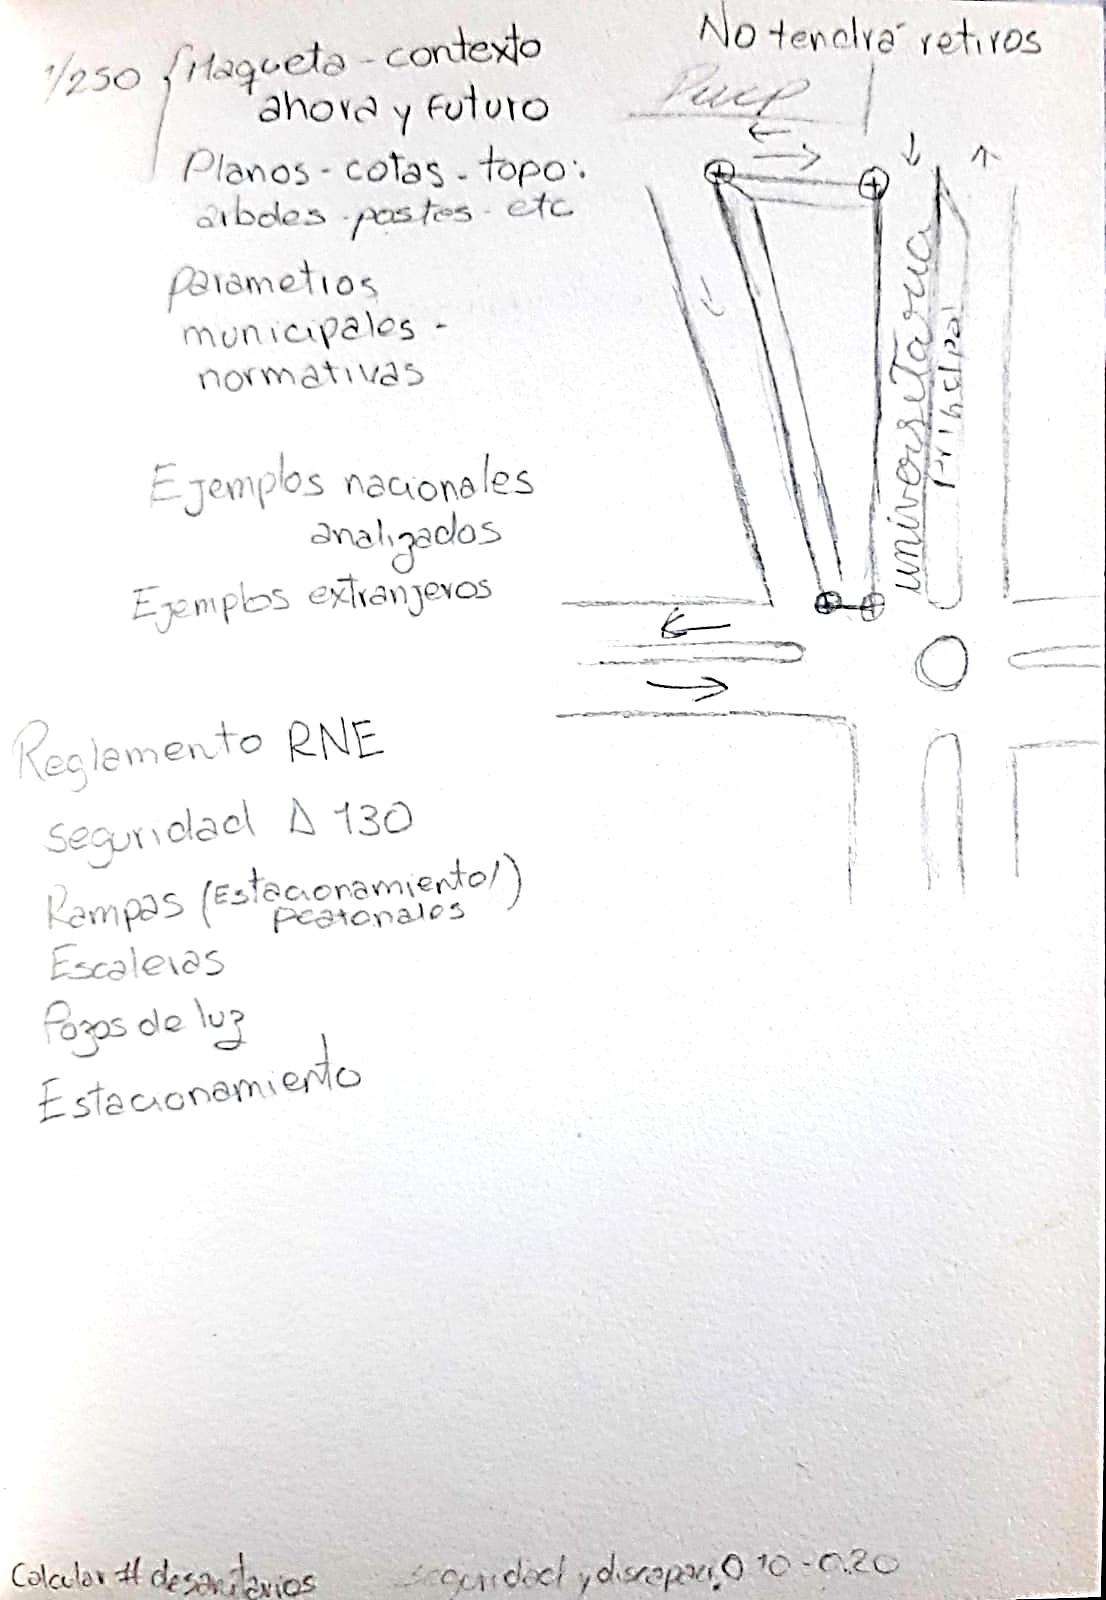 No tendrá retiros
1/250 { Maqueta - contexto
ahora y Futuro
Pucp
Planos - cotas - topo:
arboles - postes - etc
parametros
municipales -
normativas
universitaria
principal
Ejemplos nacionales
analizados
Ejemplos extranjeros
Reglamento RNE
seguridad A 130
Rampas (Estacionamiento/)
peatonales
Escaleras
Pozos de luz
Estacionamiento
Calcular # de sanitarios
seguridad y discapaci. 0.10 - 0.20